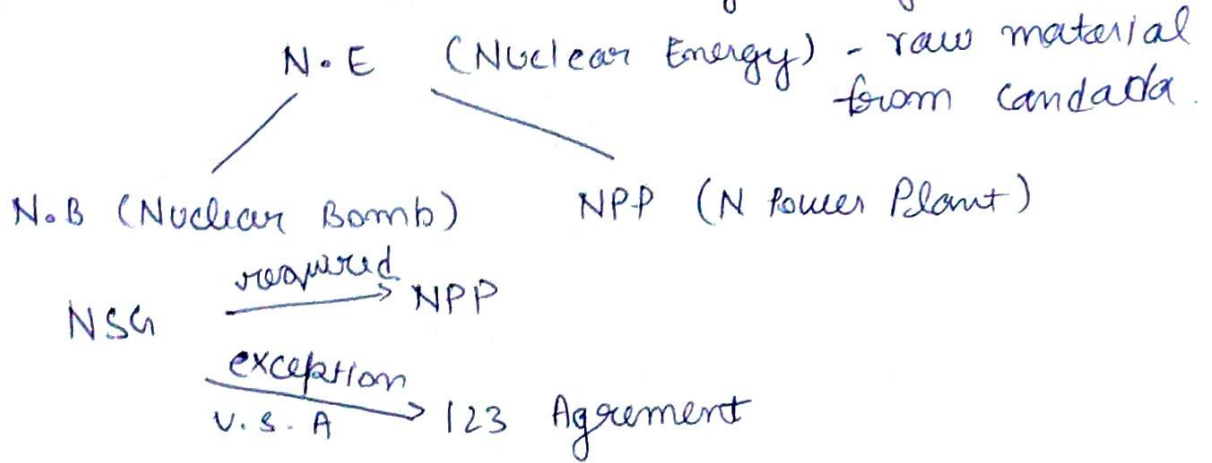 N.E (Nuclear Energy) - raw material
from candada.
N.B (Nuclear Bomb) NPP (N Power Plant)
required
NSG NPP
exception
U.S.A 123 Agrement